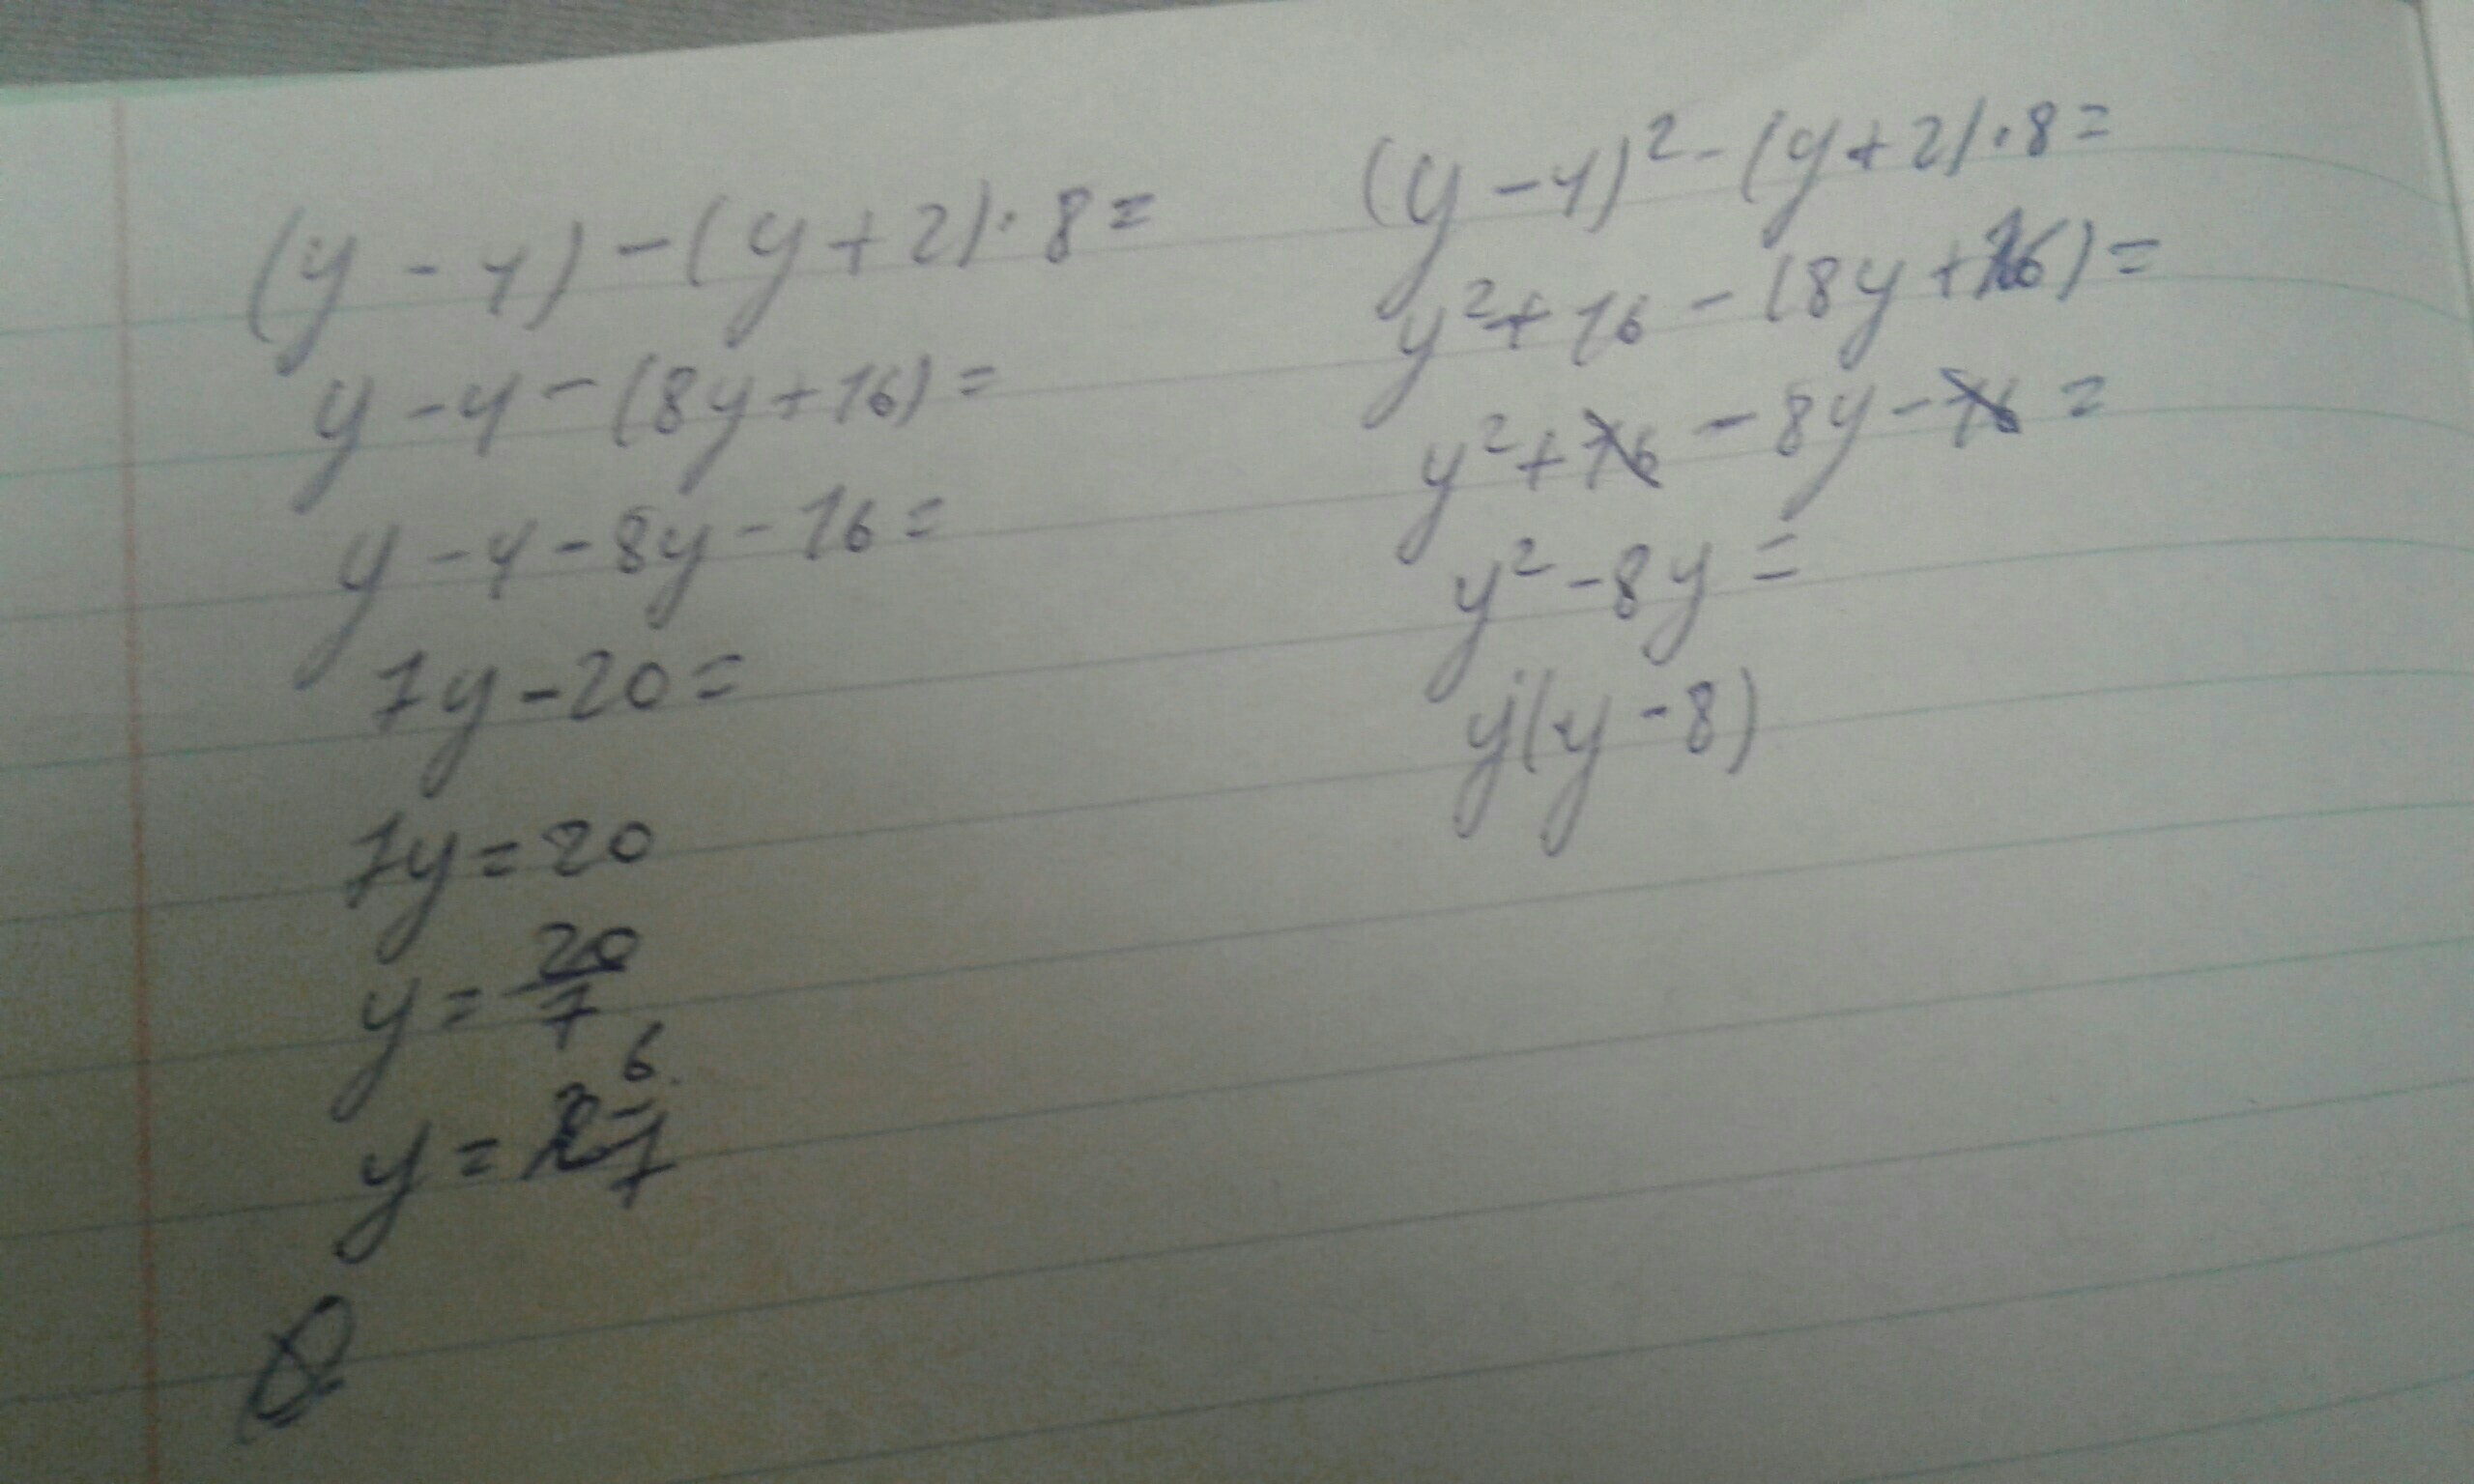 (y - 4) - (y + 2) · 8 =
y - 4 - (8y + 16) =
y - 4 - 8y - 16 =
7y - 20 =
7y = 20
y = 20/7
y = 6/7
(y - 4)² - (y + 2) · 8 =
y² + 16 - (8y + 16) =
y² + 16 - 8y - 16 =
y² - 8y =
y(y - 8)